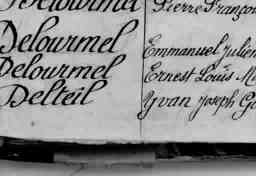 Delourmel Pierre Françoi
Delourmel Emmanuel Julien
Delourmel Ernest Louis M
Delteil Yvan Joseph G